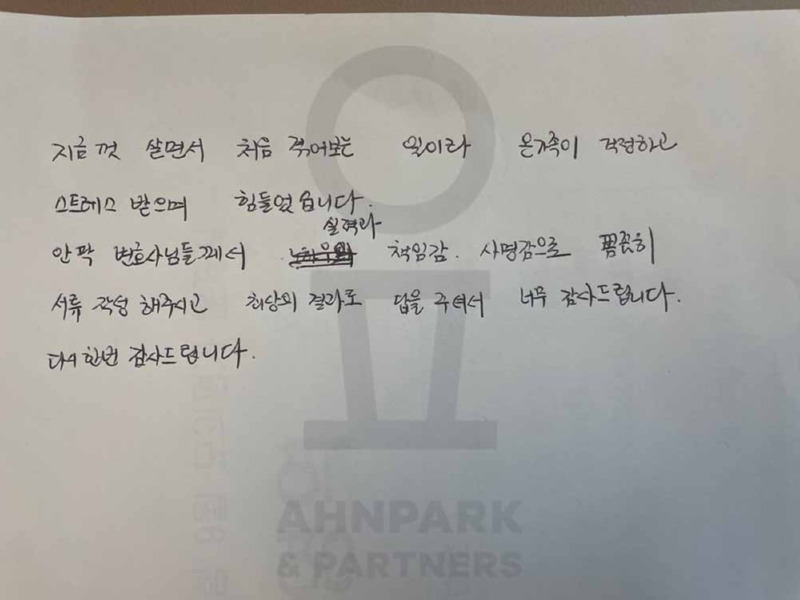 지금껏 살면서 처음 겪어보는 일이라 온가족이 걱정하고
스트레스 받으며 힘들었습니다.
실력과
안팍 변호사님들께서 책임감. 사명감으로 꼼꼼히
서류 작성 해주시고 최상의 결과로 답을 주셔서 너무 감사드립니다.
다시 한번 감사드립니다.
AHNPARK
& PARTNERS